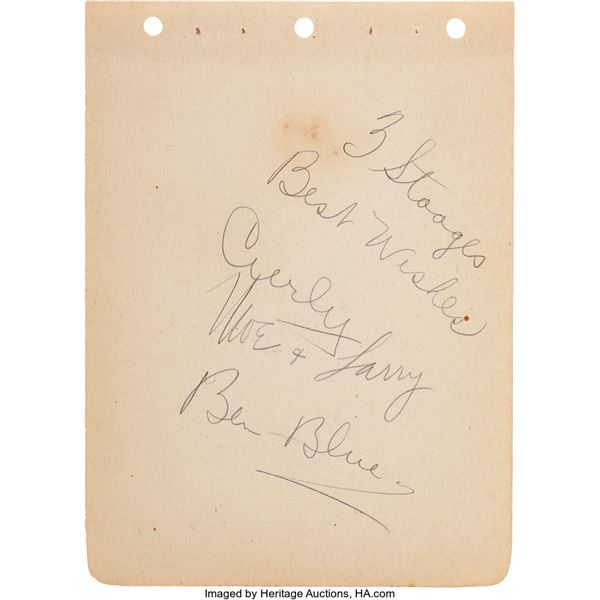 3 Stooges
Best Wishes
Curly
Moe & Larry
Ben Blue
Imaged by Heritage Auctions, HA.com